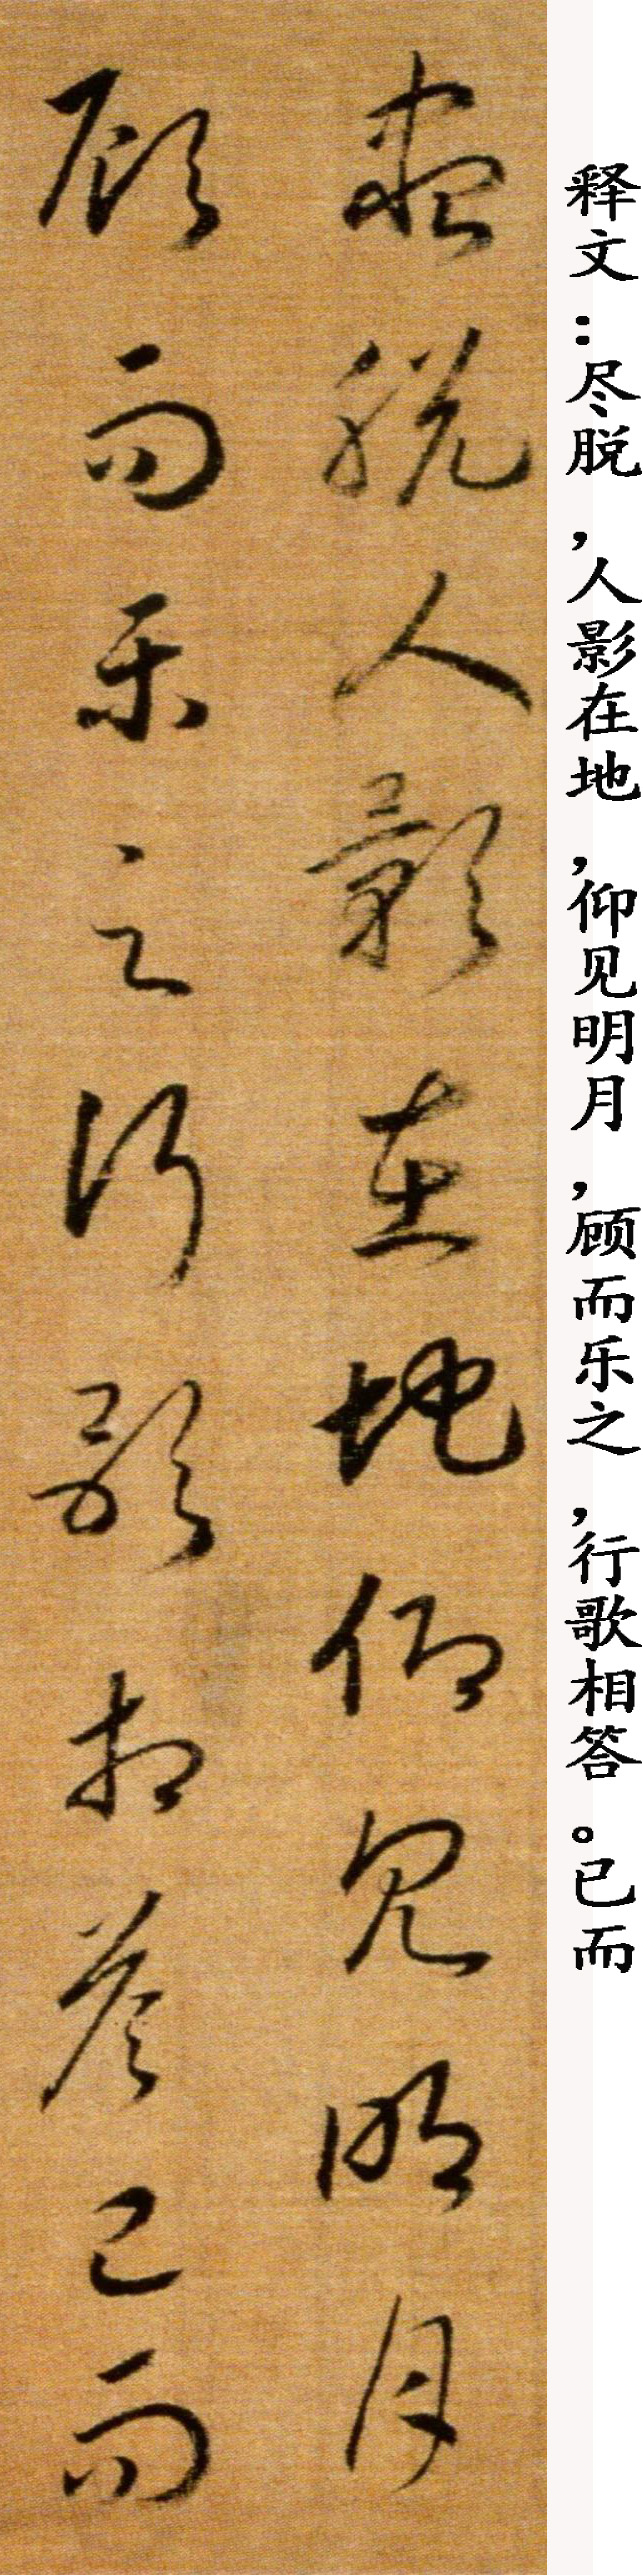 释文：尽脱，人影在地，仰见明月，顾而乐之，行歌相答。已而
盡脱人影在地仰見明月
顧而樂之行歌相答已而